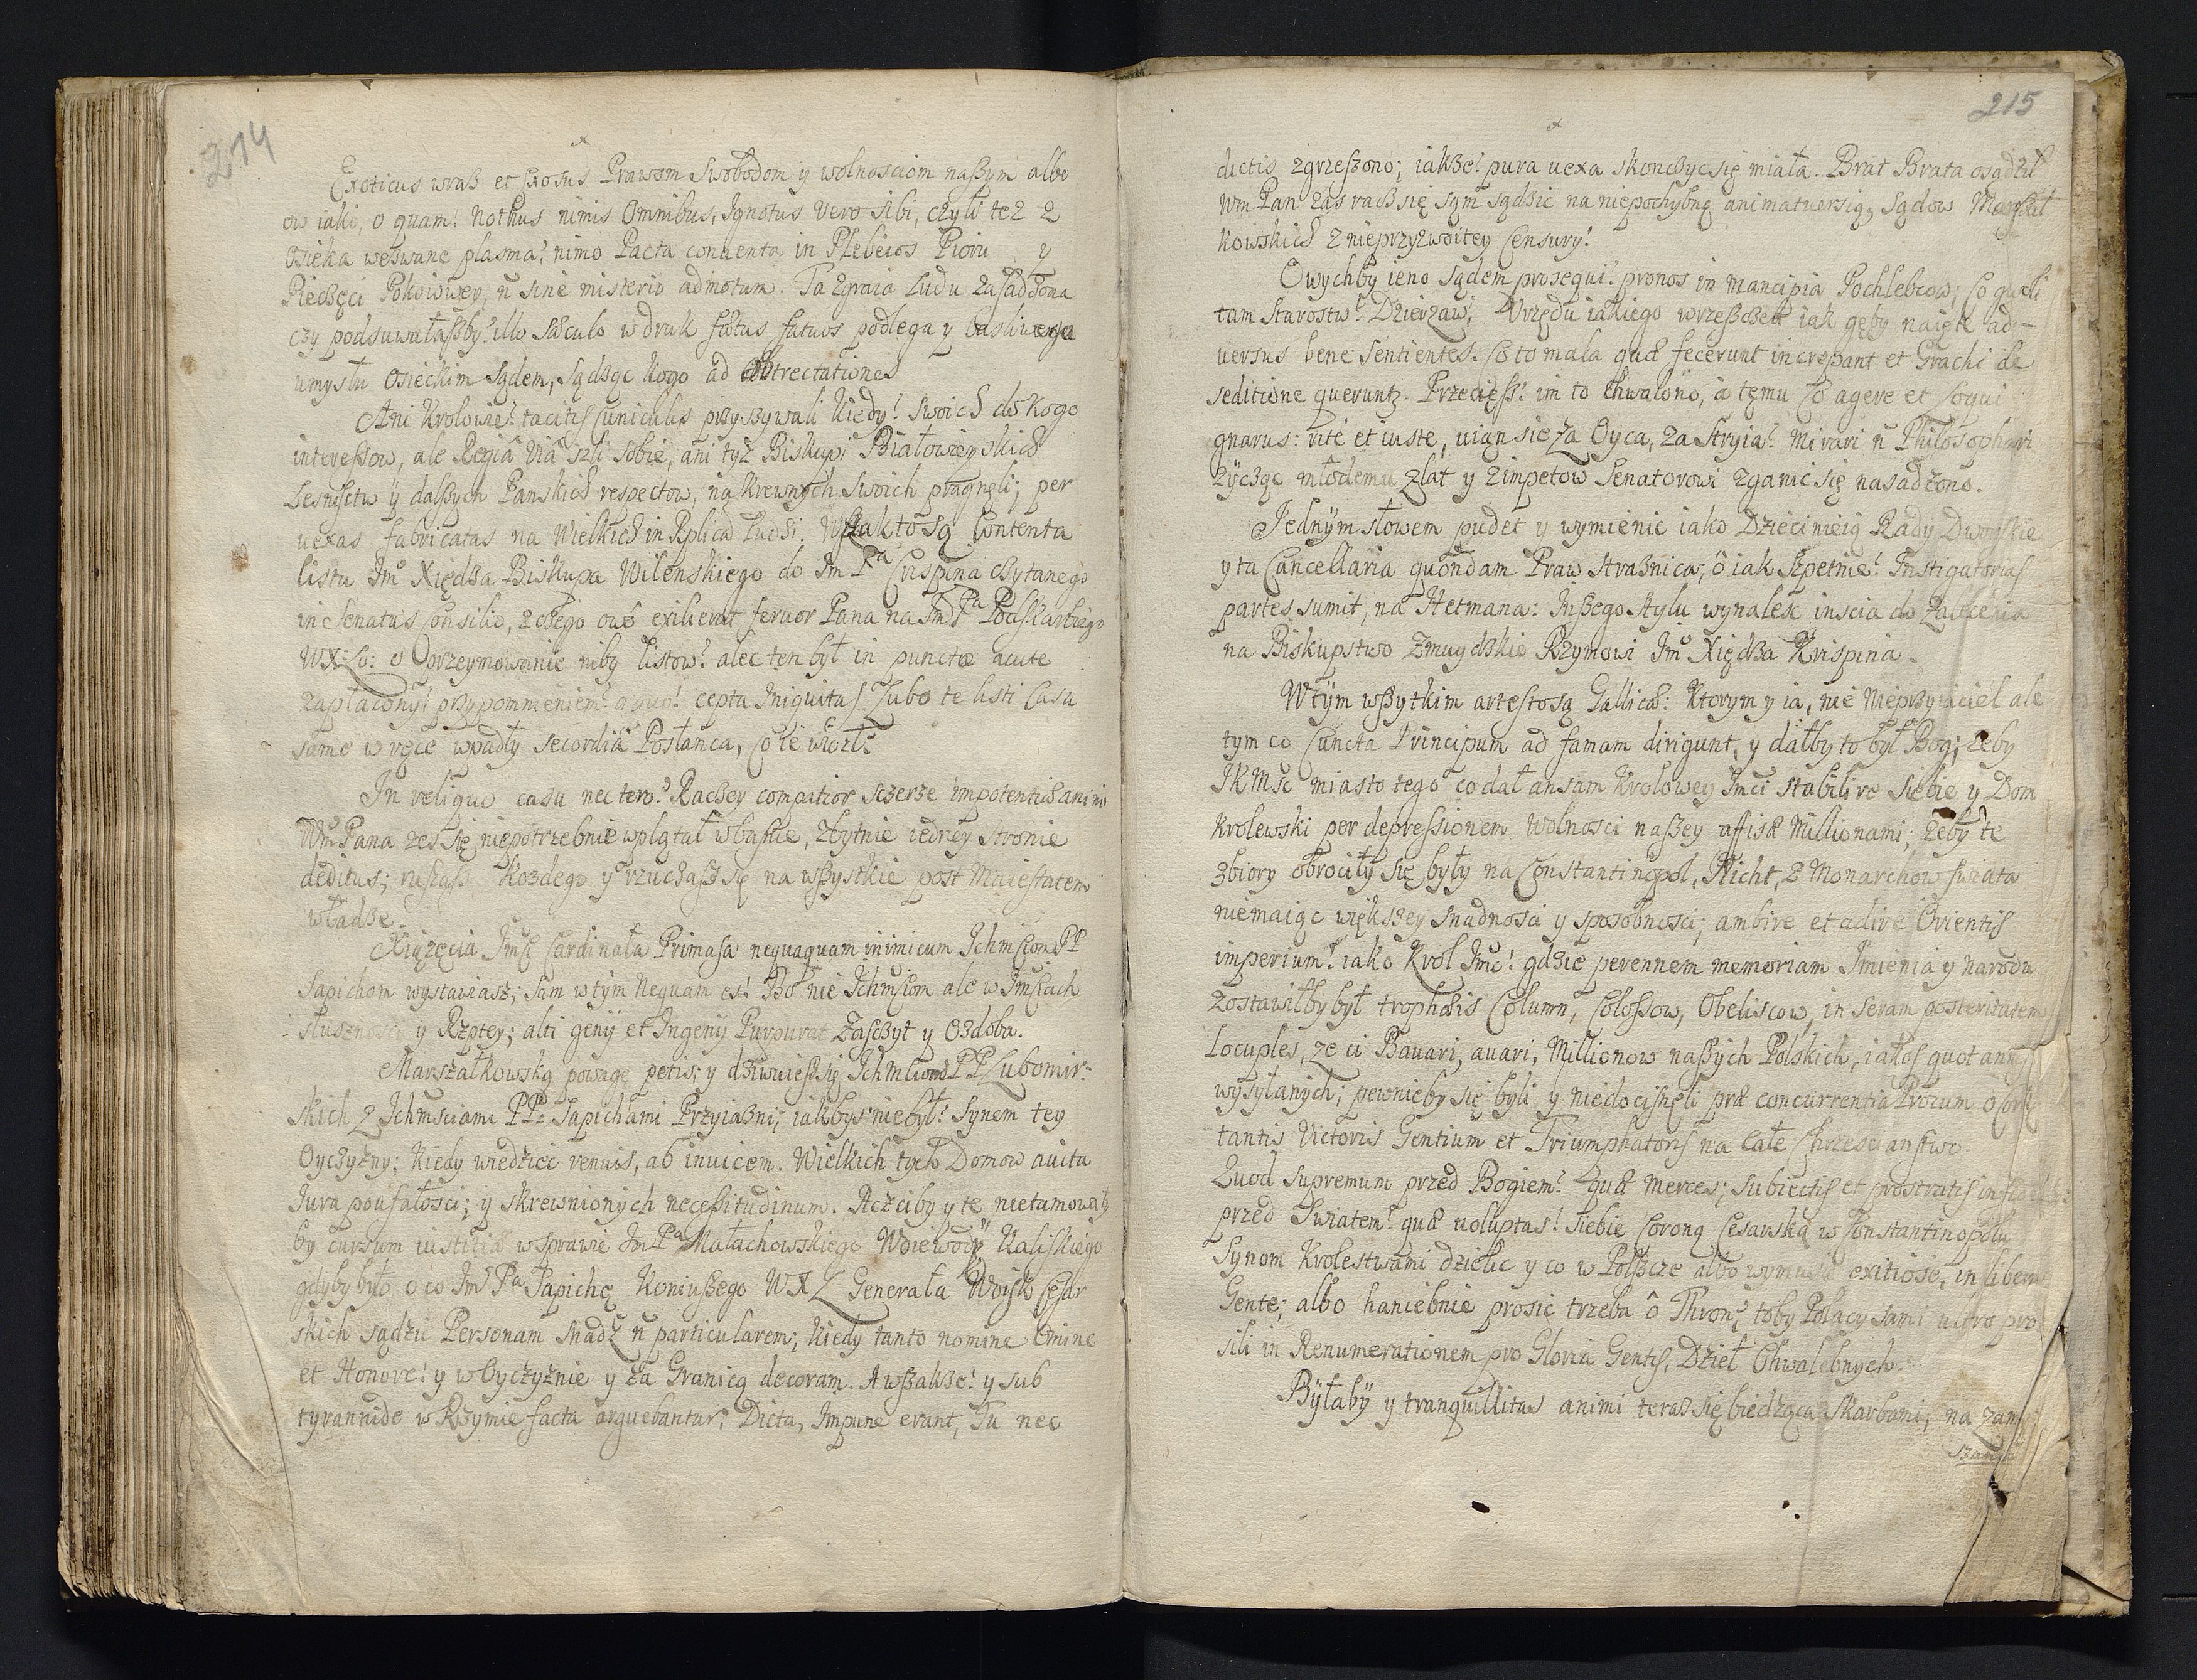 214
Exoticus wraz et Exosus Prawom Swobodom y wolnosciom naszym albo
ow iaki, o quam! Nothus nimis Omnibus, Ignotus vero sibi, czyli tez z
osieka weswane plasma! nimo Pacta conuenta in Plebeios Pioru y
Pieczęci Pokoiowey, ń sine misterio admotum. Ta zgraia Ludu zasadzona
czy podsuwałaszby! illo Sæculo w druk fætus fatuos podlega y
umysłu osieckim sądem, sądząc kogo ad obtrectationes
Ani Krolowie! tacitis cuniculis przyszywali kiedy! swoich do kogo
interessow, ale Regia Via szli sobie, ani tyż Biskupi Białowieyskich
Lesnictw ÿ dalszych Panskich respectow, na krewnych swoich pragnęli; per
uexas fabricatas na Wielkich in Rplica Ludzi. Wszak to są Contenta
listu Jmͦ Xiędza Biskupa Wilenskiego do Jm Pᵃ Crispina czytanego
in Senatus Consilio, z czego owo exilierat feruor Pana na Jmͦ Pᵃ Podskarbiego
WXLo: o przeymowanie niby listow! alec ten był in puncto acute
zapłacony! przypomnieniem! a quo! cepta Iniquitas. Lubo te listi casu
same w ręce wpadły secordia Posłanca, co ie wiozł!
In reliquo casu nec tero! Raczey compatior szczerze impotentiæ animi
Wmͦ Pana zes się niepotrzebnie wplątał w basnie, zbytnie iedney stronie
deditus; ruszasz kozdego y rzucasz się na wszystkie post Maiestatem
władze.
Xiązęcia Jmsc Cardinała Primasa nequaquam inimicum Ichmsciom PP
Sapiehom wystawiasz; sam w tym Nequam es! Bo nie Ichmsciom ale w Imsciach
słusznosci y Rzptey; alti genij et Ingenij Purpurat zaszczyt y Ozdoba.
Marszałkowską powagę petis; y dziwuiesz się Ichmsciom PP Lubomir:
skich z Ichmsciami PP: Sapiehami Przyiazni; iakbys nie był! synem tey
Oyczyzny; kiedy wiedziec renuis, ab inuicem. Wielkich tych Domow auita
Iura poufałosci; y skrewnionych necessitudinum. Aczciby y te nie tamowały
by cursum iustitiæ w sprawie Jm Pᵃ Małachowskiego Woiewody Kaliskiego
gdyby było o co Jmͦ Pᵃ Sapiehę Koniuszego WXL Generała Woisk Cesar
skich sądzic Personam snadz ń particularem; kiedy tanto nomine Omine
et Honore! y w Oyczyznie y za Granicą decoram. A wszakze! y sub
tyrannide w Rzymie facta arguebantur; Dicta, Impune erant, Tu nec
215
dictis zgrzeszono; iakze! pura uexa skonczyc się miała. Brat Brata osądził
Wm Pan zas racz się sąm sądzic na niepochybną animatuersią, sądow Marszał
kowskich z nieprzyzwoitey Censury!
Owychby ieno sądem prosequi! pronos in mancipia Pochlebcow; co gwoli
tam Starostw! Dzierzaw; Vrzędu iakiego wrzeszczek iak gęby naięte ad-
uersus bene sentientes. Co to mala quæ fecerunt increpant et Grachi de
seditione queruntz. Przecięsz! im to chwalono, a temu co agere et loqui
gnarus: rite et iuste, uiąn sie za Oyca, za Stryia! Mirari ń Philosophari
życząc młodemu z lat y z impetow Senatorowi zganic się nasadzono.
Jednÿm słowem pudet y wymienic iako Dziecinieią Rady Dworskie
y ta Cancellaria quondam Praw straznica, ô iak szpetnie! Instigatorias
partes sumit, na Hetmana: Inszego stylu wynalesc inscia do zalecenia
na Biskupstwo Zmuydzkie Rzymowi Jmͦ Xiędza Krispina.
W tÿm wszytkim artes to są Gallicæ: Ktorym y ia, nie Nieprzyiaciel ale
tym co Cuncta Principum ad famam dirigunt, y dałby to był Bog; zeby
JKMsc miasto tego co dał ansam Krolowey Jmci stabilire siebie y Dom
krolewski per depressionem wolnosci naszey affisæ Millionami; zeby te
zbiory obrociły się były na Constantinopol, Nicht z Monarchow swiata
niemaiąc większey snadnosci y sposobnosci; ambire et adire Orientis
imperium! iako Krol Jmc! gdzie perennem memoriam Imienia y Narodu
zostawiłby był trophæis Column, Colossow, Obeliscow, in seram posteritatem
Locuples, ze ci Bauari, auari, Millionow naszych Polskich, iakos quot annis
wysyłanych; pewnieby się byli y niedocisnęli præ concurrentia Procum o cory
tantis Victoris Gentium et Triumphatoris na całe Chrzescianstwo.
Quod supremum przed Bogiem! quæ merces; subiectis et prostratis
przed Swiatem! quæ uoluptas! siebie Coroną Cesarską w Constantinopolu
Synom Krolestwami dzielic y co w Polszcze albo wymusic exitiose, in libera
Gente; albo haniebnie prosic trzeba ô Thron; toby Polacy sami ultro pro
sili in Renumerationem pro Gloria Gentis, Dzieł Chwalebnych.
Byłaby y tranquillitas animi teraz się biedząca skarbami, na zam